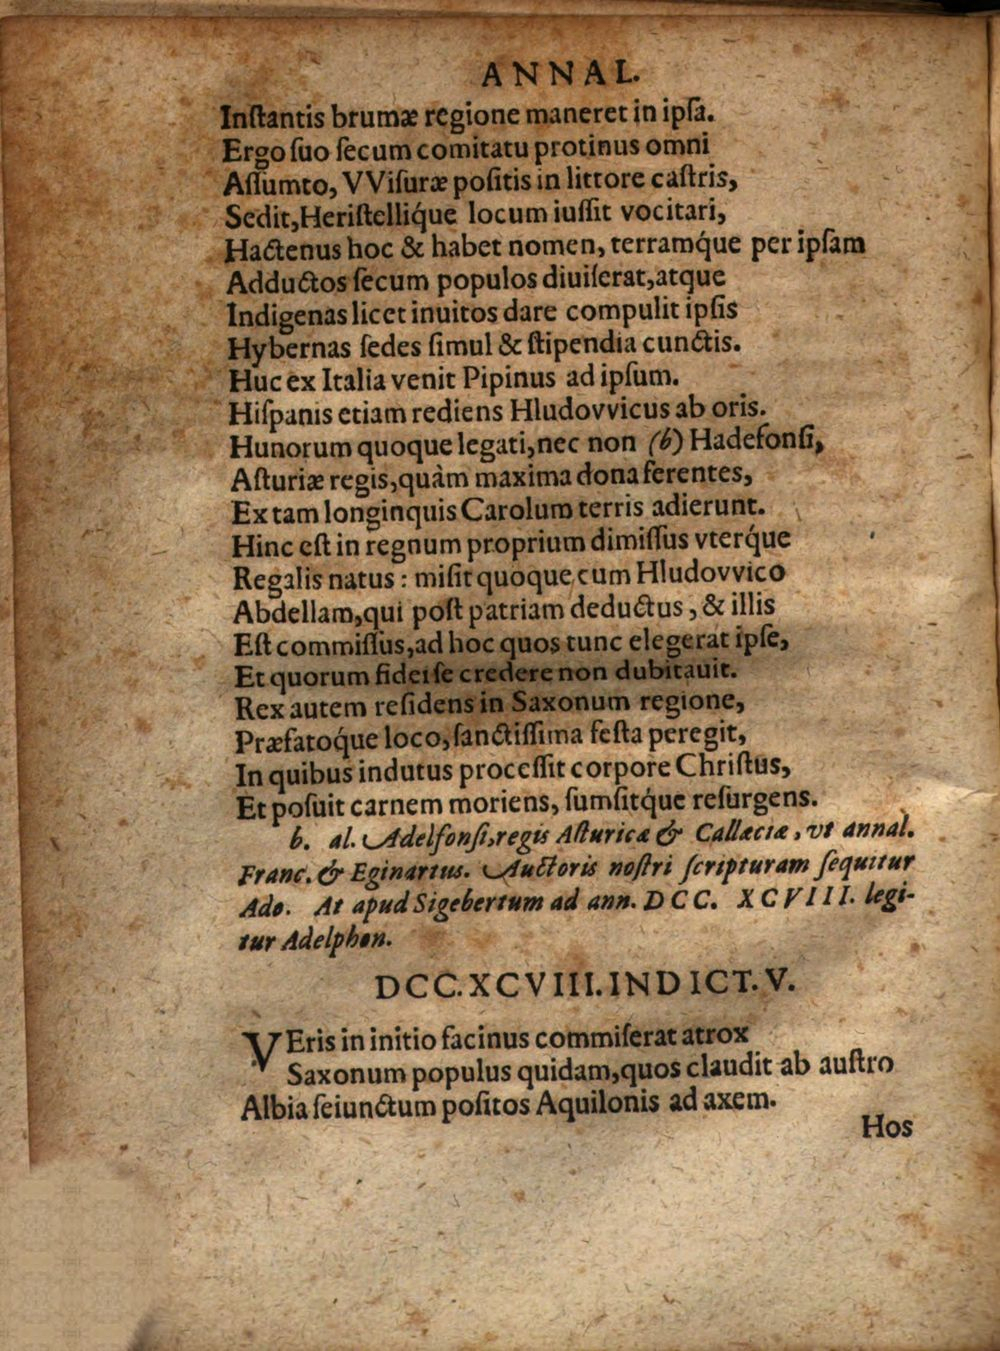 ANNAL.
Inſtantis brumæ regione maneret in ipſa.
Ergo ſuo ſecum comitatu protinus omni
Aſſumto, VViſuræ poſitis in littore caſtris,
Sedit, Heriſtellíque locum iuſſit vocitari,
Hactenus hoc & habet nomen, terramq́ue per ipſam
Adductos ſecum populos diuiſerat, atque
Indigenas licet inuitos dare compulit ipſis
Hybernas ſedes ſimul & ſtipendia cunctis.
Huc ex Italia venit Pipinus ad ipſum.
Hiſpanis etiam rediens Hludovvicus ab oris.
Hunorum quoque legati, nec non (b) Hadefonſi,
Aſturiæ regis, quàm maxima dona ferentes,
Ex tam longinquis Carolum terris adierunt.
Hinc eſt in regnum proprium dimiſſus vterq́ue
Regalis natus: miſit quoque cum Hludovvico
Abdellam, qui poſt patriam deductus, & illis
Eſt commiſſus, ad hoc quos tunc elegerat ipſe,
Et quorum fidei ſe credere non dubitauit.
Rex autem reſidens in Saxonum regione,
Præfatoq́ue loco, ſanctiſſima feſta peregit,
In quibus indutus proceſſit corpore Chriſtus,
Et poſuit carnem moriens, ſumſitq́ue reſurgens.
b. al. Adelfonſi, regis Aſturicæ & Callæciæ, vt annal.
Franc. & Eginartus. Auctoris noſtri ſcripturam ſequitur
Ado. At apud Sigebertum ad ann. DCC. XCVIII. legi-
tur Adelphon.
DCC.XCVIII.INDICT.V.
VEris in initio facinus commiſerat atrox
Saxonum populus quidam, quos claudit ab auſtro
Albia ſeiunctum poſitos Aquilonis ad axem.
Hos